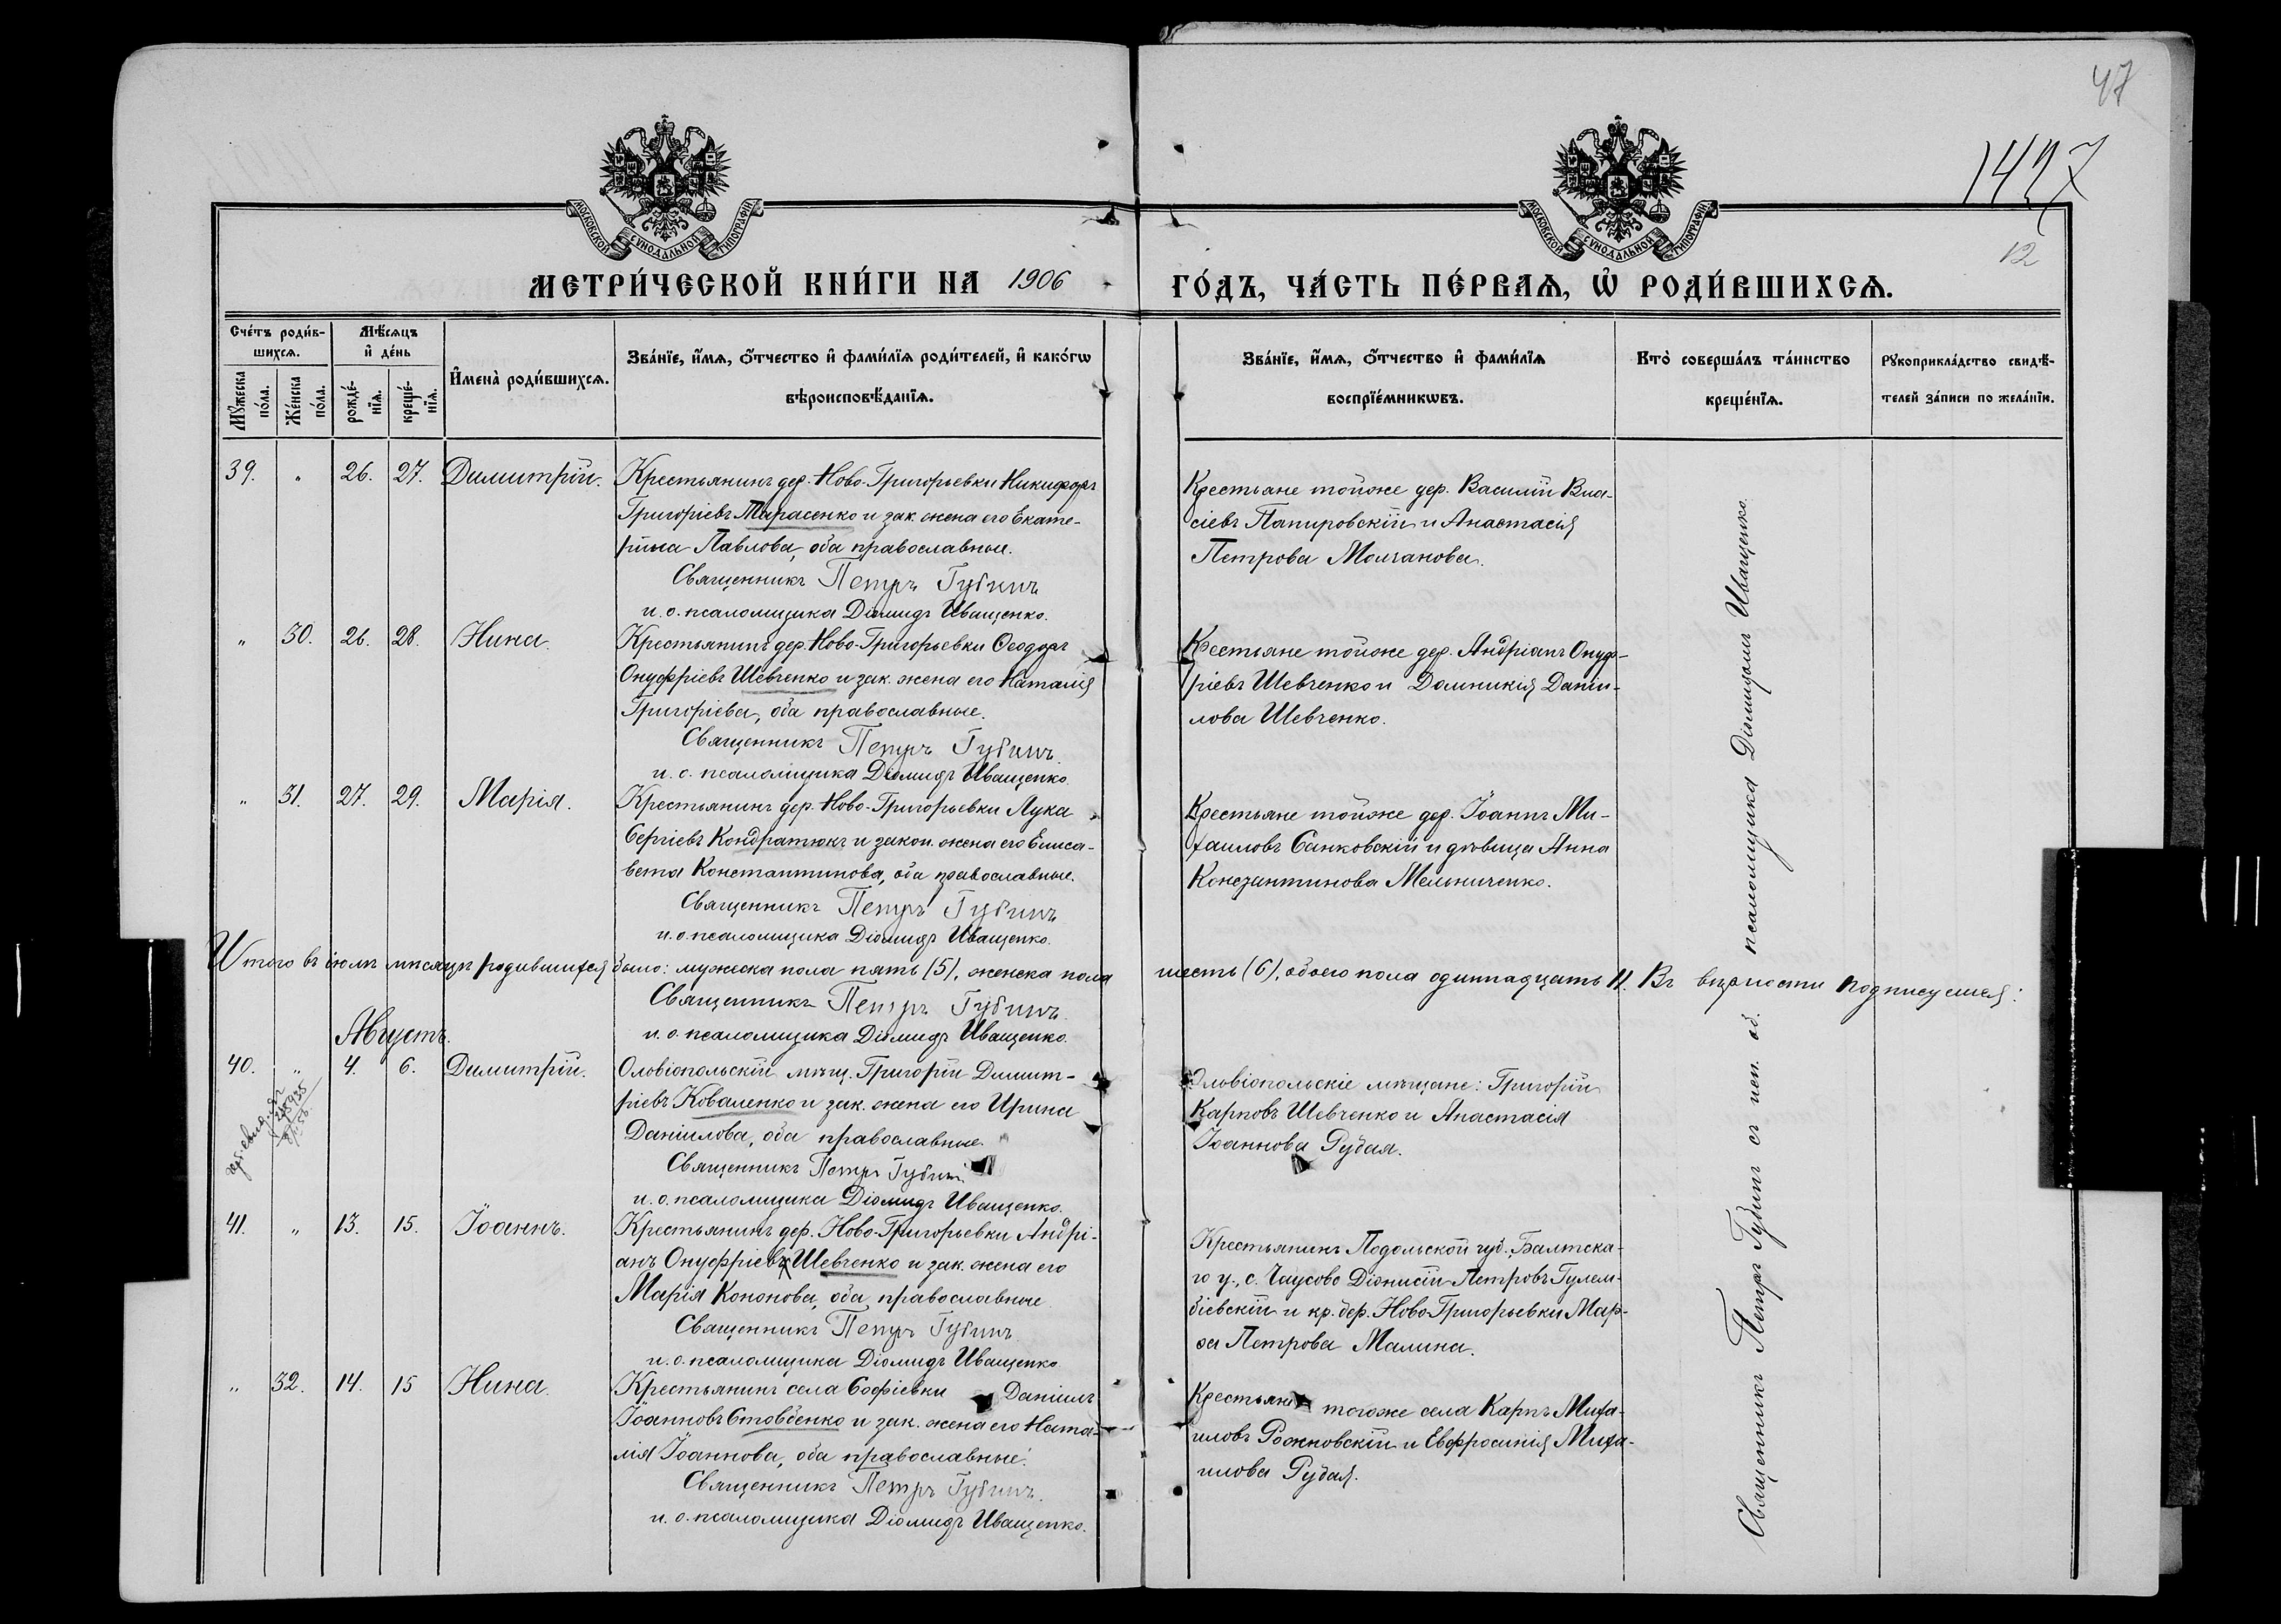 47
1427
12
МОСКОВСКОЙ СѴНОДАЛЬНОЙ ТИПОГРАФІИ
МОСКОВСКОЙ СѴНОДАЛЬНОЙ ТИПОГРАФІИ
МЕТРИ́ЧЕСКОЙ КНИ́ГИ НА 1906 ГО́ДЪ, ЧА́СТЬ ПЕ́РВАѦ, Ѡ҆ РОДИ́ВШИХСѦ.
Сче́тъ роди́в-
шихсѧ.
Мꙋ́жеска по́ла.
Же́нска по́ла.
Мѣ́сѧцъ
и҆ де́нь
рожде́-
нїѧ.
креще́-
нїѧ.
И҆мена̀ роди́вшихсѧ.
Зва́нїе, и҆́мѧ, ѻ҆́тчество и҆ фами́лїѧ роди́телей, и҆ како́гѡ
вѣроисповѣ́данїѧ.
Зва́нїе, и҆́мѧ, ѻ҆́тчество и҆ фами́лїѧ
воспрїе́мникѡвъ.
Кто̀ соверша́лъ та́инство
креще́нїѧ.
Рꙋкоприкла́дство свидѣ́-
телей за́писи по жела́нїи.
39. " 26. 27. Димитрій. Крестьянинъ дер. Ново-Григорьевки Никифоръ
Григоріевъ Тарасенко и зак. жена его Екате-
рина Павлова, оба православные.
Священникъ Петръ Губинъ
и. о. псаломщика Діомидъ Иващенко.
Крестьяне тойже дер. Василій Вла-
сіевъ Папировскій и Анастасія
Петрова Молчанова.
" 30. 26. 28. Нина. Крестьянинъ дер. Ново-Григорьевки Ѳеодоръ
Онуфріевъ Шевченко и зак. жена его Наталія
Григоріева, оба православные.
Священникъ Петръ Губинъ.
и. о. псаломщика Діомидъ Иващенко.
Крестьяне тойже дер. Андріанъ Онуф-
ріевъ Шевченко и Домникія Даніи-
лова Шевченко.
" 31. 27. 29. Марія. Крестьянинъ дер. Ново-Григорьевки Лука
Сергіевъ Кондратюкъ и закон. жена его Елиса-
вета Константинова, оба православные.
Священникъ Петръ Губинъ
и. о. псаломщика Діомидъ Иващенко.
Крестьяне тойже дер. Іоаннъ Ми-
хаиловъ Санковскій и дѣвица Анна
Константинова Мельниченко.
Итого въ іюлѣ мѣсяцѣ родившихся было: мужеска пола пять (5), женска пола шесть (6), обоего пола одиннадцать 11. Въ вѣрности подписуемся:
Священникъ Петръ Губинъ.
и. о. псаломщика Діомидъ Иващенко.
Августъ.
40. " 4. 6. Димитрій. Ольвіопольскій мѣщ. Григорій Димит-
ріевъ Коваленко и зак. жена его Ирина
Даніилова, оба православные.
Священникъ Петръ Губинъ
и. о. псаломщика Діомидъ Иващенко.
Ольвіопольскіе мѣщане: Григорій
Карповъ Шевченко и Анастасія
Іоаннова Рубая.
41. " 13. 15. Іоаннъ. Крестьянинъ дер. Ново-Григорьевки Андрі-
анъ Онуфріевъ Шевченко и зак. жена его
Марія Кононова, оба православные.
Священникъ Петръ Губинъ.
и. о. псаломщика Діомидъ Иващенко.
Крестьянинъ Подольской губ., Балтска-
го у., с. Чаусово Діонисій Петровъ Гулем-
біевскій и кр. дер. Ново-Григорьевки Мар-
ѳа Петрова Малина.
" 32. 14. 15 Нина. Крестьянинъ села Софіевки Даніилъ
Іоанновъ Стовбенко и зак. жена его Ната-
лія Іоаннова, оба православные.
Священникъ Петръ Губинъ.
и. о. псаломщика Діомидъ Иващенко.
Крестьяне тогоже села Карпъ Миха-
иловъ Рожновскій и Евфросинія Миха-
илова Рубая.
Священникъ Петръ Губинъ съ исп. об. псаломщика Діомидомъ Иващенко